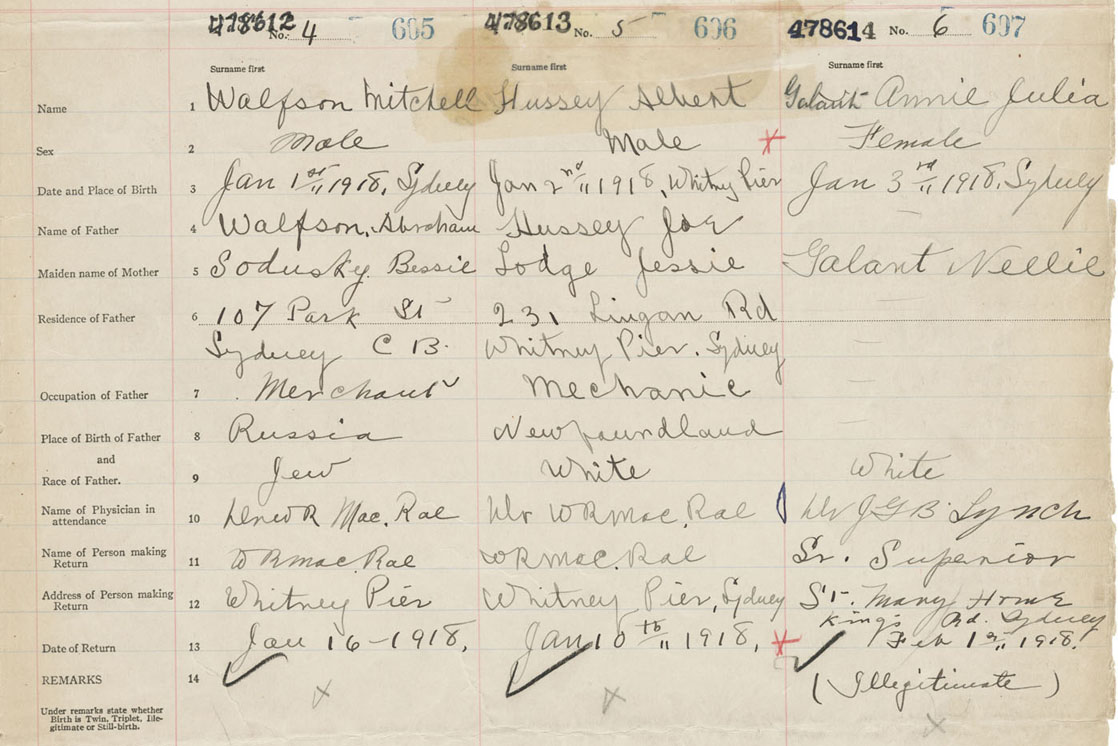 478612 No. 4 605 478613 No. 5 606 478614 No. 6 607
Surname first Surname first Surname first
Name 1 Walfson Mitchell Hussey Albert Galant Annie Julia
Sex 2 Male Male Female
Date and Place of Birth 3 Jan 1st " 1918, Sydney Jan 2nd " 1918, Whitney Pier Jan 3rd " 1918, Sydney
Name of Father 4 Walfson, Abraham Hussey Joe —
Maiden name of Mother 5 Sodusky Bessie Lodge Jessie Galant Nellie
Residence of Father 6 107 Park St 231 Lingan Rd —
Sydney C B. Whitney Pier. Sydney —
Occupation of Father 7 Merchant Mechanic —
Place of Birth of Father 8 Russia Newfoundland —
and
Race of Father. 9 Jew White White
Name of Physician in
attendance 10 W R Mac.Rae Dr W R Mac.Rae Dr J G B Lynch
Name of Person making
Return 11 W R Mac.Rae W R Mac.Rae Sr. Superior
Address of Person making
Return 12 Whitney Pier Whitney Pier, Sydney St. Mary Home
Kings Rd. Sydney
Date of Return 13 Jan 16-1918. Jan 10th " 1918. Feb 1st " 1918.
REMARKS 14 (Illegitimate)
Under remarks state whether
Birth is Twin, Triplet, Ille-
gitimate or Still-birth.